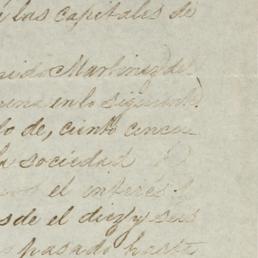 las capitales de
Martinez del
en lo siguiente
lo de, ciento cincu
la sociedad
el interés
sde el diez y seis
pasado hasta